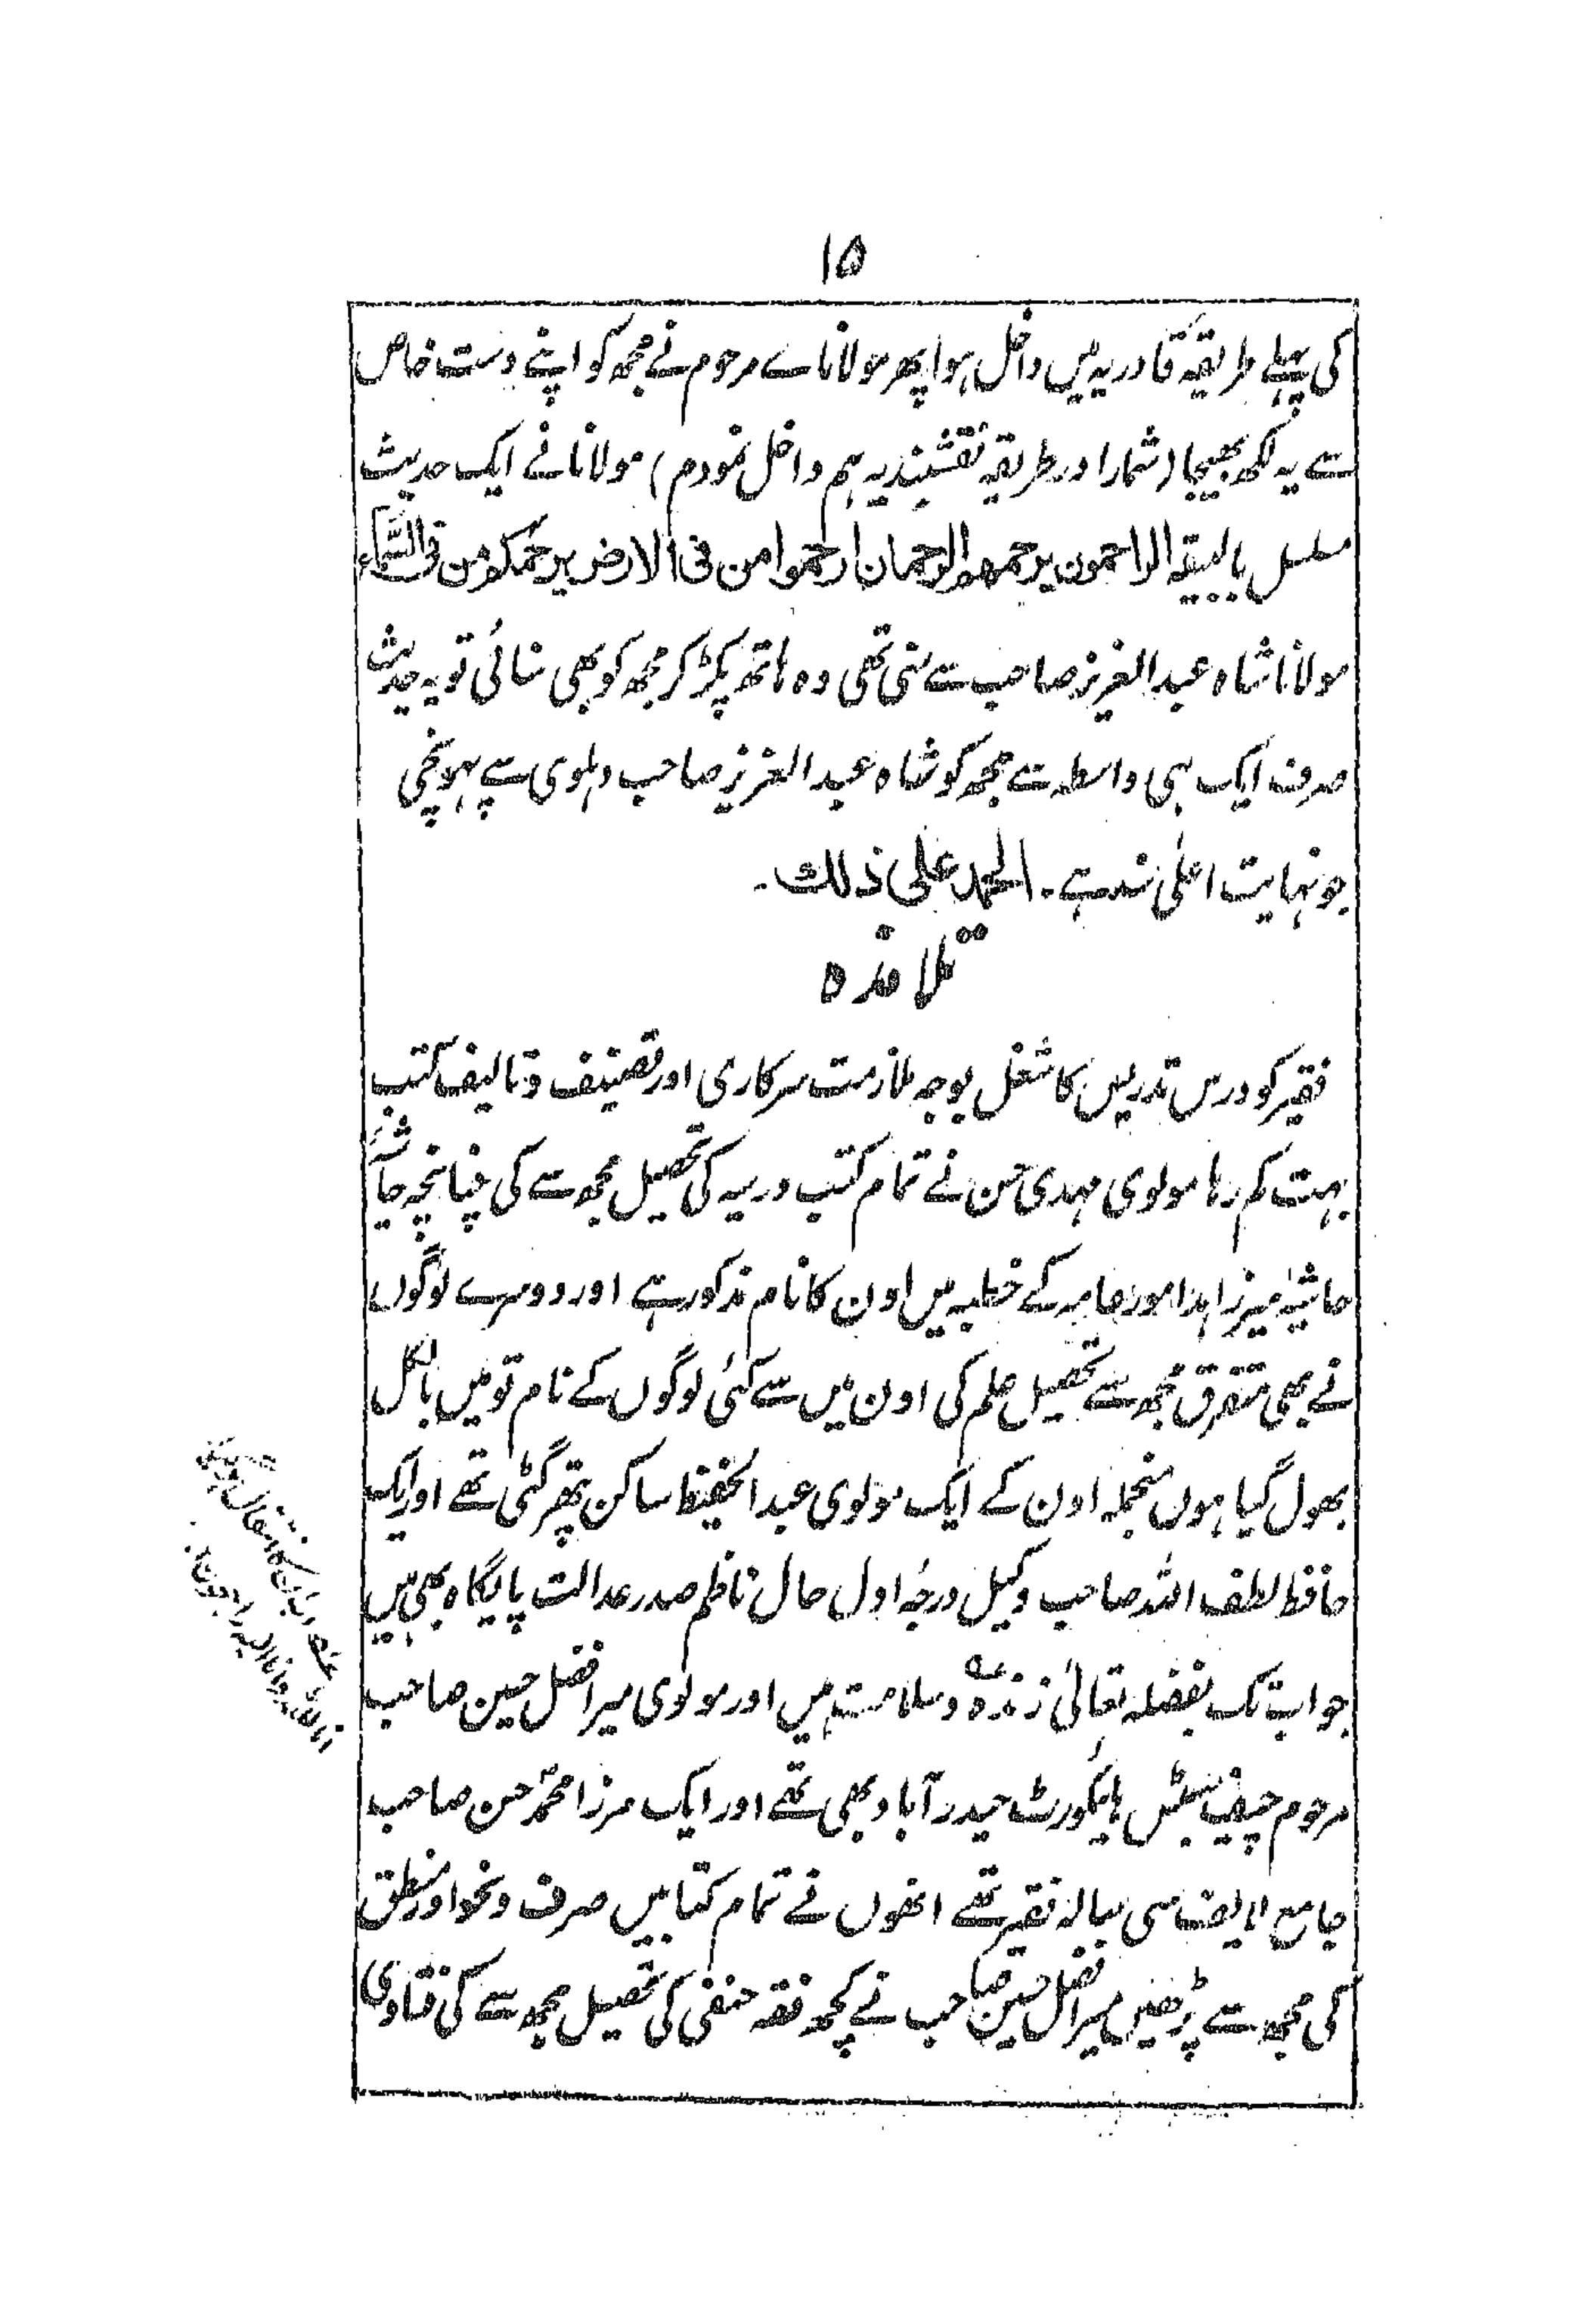 ۱۵
کی پہلے طریقہ قادریہ میں داخل ہوا پھر مولانائے مرحوم نے مجھ کو اپنے دست خاص
سے یہ لکھ بھیجا (شمارا در طریقہ نقشبندیہ ہم داخل نمودم) مولانا نے ایک حدیث
مسلسل بالبیقۃ الراحمون یرحمھم الرحمان ارحموا من فی الارض یرحمکم من فی السَّماء
مولانا شاہ عبد العزیز صاحب سے سنی تھی وہ ہاتھ پکڑ کر مجھ کو بھی سنائی تو یہ حدیث
صرف ایک ہی واسطہ سے مجھ کو شاہ عبد العزیز صاحب دہلوی سے پہونچی
جو نہایت اعلٰی سند ہے۔ الحمد علی ذلک۔
تلامذہ
فقیر کو درس تدریس کا شغل بوجہ ملازمت سرکاری اور تصنیف و تالیف کتب
بہت کم رہا مولوی مہدی حسن نے تمام کتب درسیہ کی تحصیل مجھ سے کی چنانچہ حاشیۂ
حاشیۂ میر زاہد امور عامہ کے خطبہ میں اون کا نام مذکور ہے اور دوسرے لوگوں
نے بھی متفرق مجھ سے تحصیل علم کی اون میں سے کئی لوگوں کے نام تو میں بالکل
بھول گیا ہوں منجملہ اون کے ایک مولوی عبد الحفیظ ساکن پتھر گٹی تھے اور ایک
حافظ لطف اللہ صاحب وکیل درجۂ اول حال ناظم صدر عدالت پایگاہ بھی ہیں
جو اب تک بفضلہ تعالٰی زندہ و سلامت ہیں اور مولوی میر افضل حسین صاحب
مرحوم چیف جسٹس ہائیکورٹ حیدرآباد بھی تھے اور ایک مرزا محمدؐ حسن صاحب
جامع تالیف سی سالہ فقیر تھے انھوں نے تمام کتابیں صرف و نحو اور منطق
کی مجھ سے پڑھیں میر افضل حسین صاحب نے کچھ فقہ حنفی کی تحصیل مجھ سے کی فتاوی
عـہ اب ان کا انتقال
انا للہ وانا الیہ راجعون